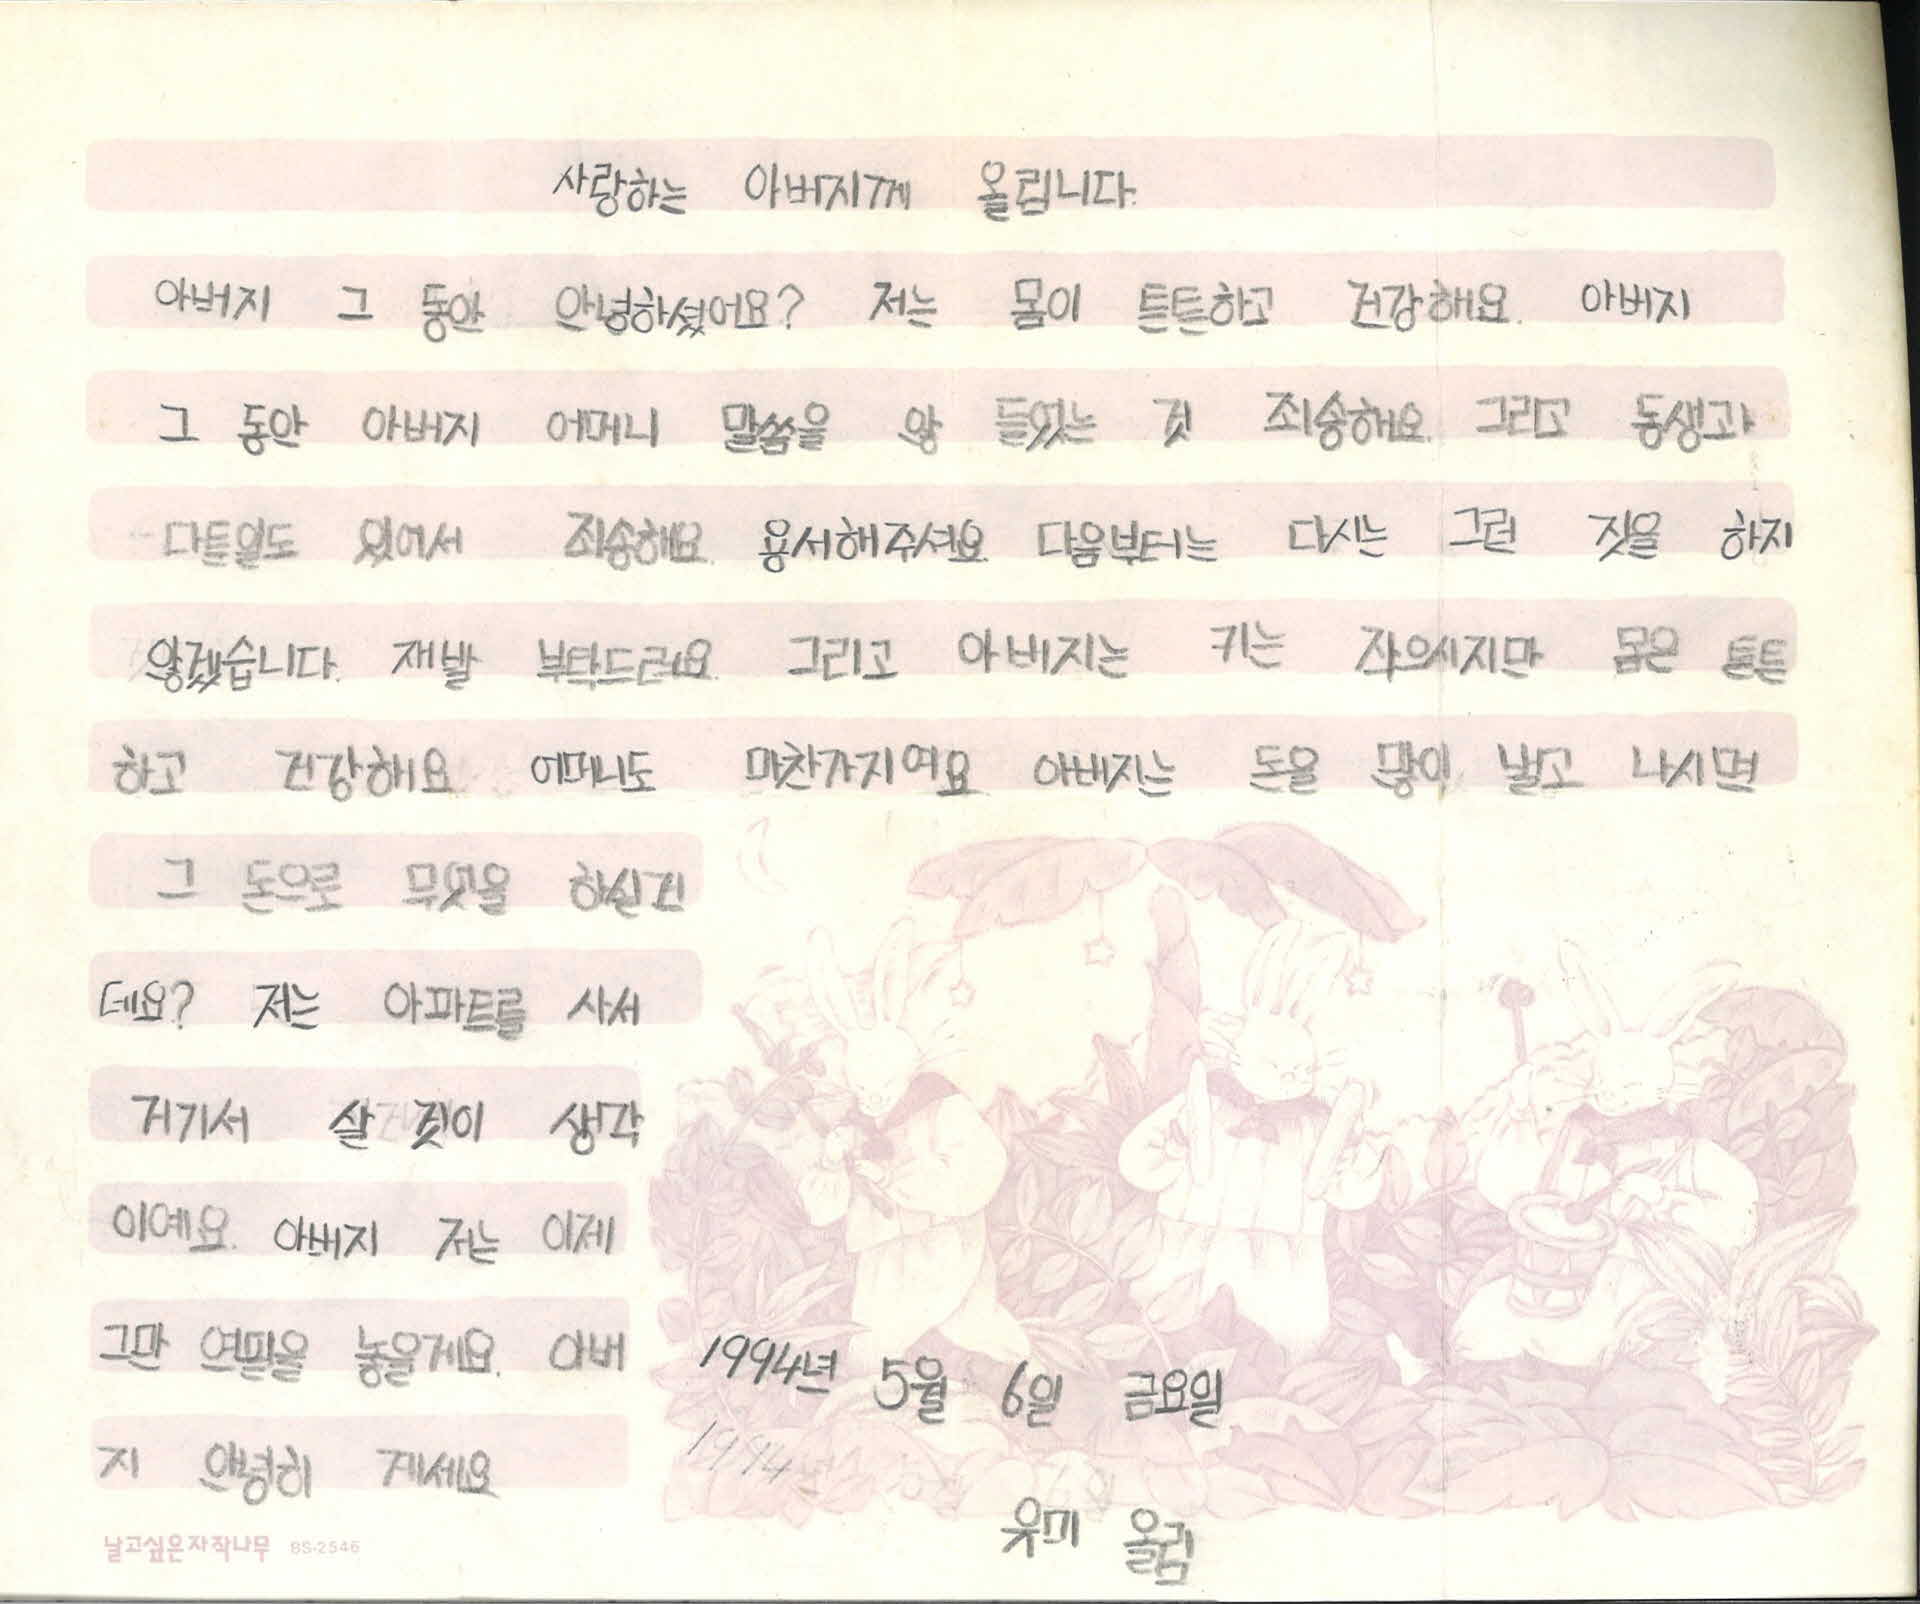 사랑하는 아버지께 올립니다.
아버지 그 동안 안녕하셨어요? 저는 몸이 튼튼하고 건강해요. 아버지
그 동안 아버지 어머니 말씀을 않 들었는 것 죄송해요. 그리고 동생과
다튼일도 있어서 죄송해요. 용서해주셔요. 다음부터는 다시는 그런 짓을 하지
않겠습니다. 재발 부탁드려요. 그리고 아버지는 키는 작으시지만 몸은 튼튼
하고 건강해요. 어머니도 마찬가지여요. 아버지는 돈을 많이 벌고 나시면
그 돈으로 무엇을 하실건
데요? 저는 아파트를 사서
거기서 살 것이 생각
이예요. 아버지 저는 이제
그만 연필을 놓을게요. 아버
지 안녕히 게세요
1994년 5월 6일 금요일
1994
유미 올림
날고싶은자작나무 BS-2546